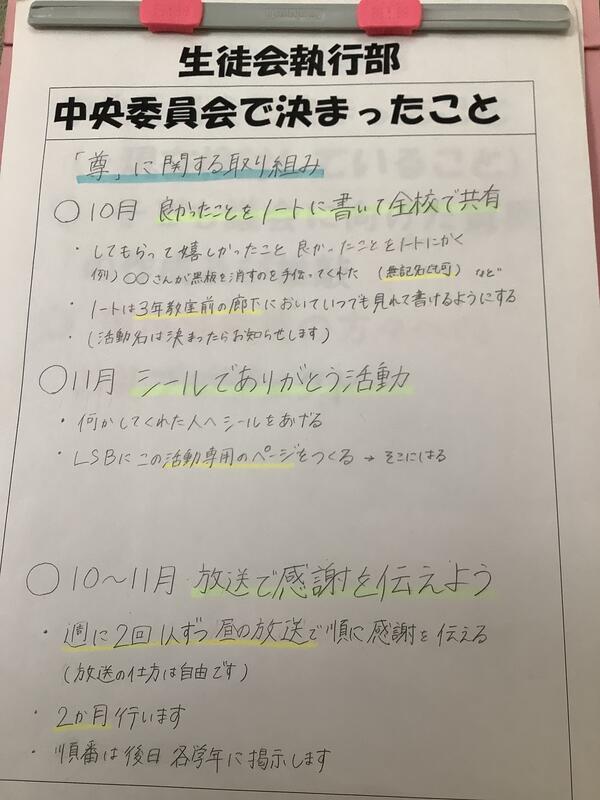 生徒会執行部
中央委員会で決まったこと
「尊」に関する取り組み
○10月 良かったことをノートに書いて全校で共有
・してもらって嬉しかったこと 良かったことをノートにかく
例) ○○さんが黒板を消すのを手伝ってくれた (無記名も可) など
・ノートは3年教室前の廊下においていつでも見れて書けるようにする
・(活動名は決まったらお知らせします)
○11月 シールでありがとう活動
・何かしてくれた人へシールをあげる
・LSBにこの活動専用のページをつくる → そこにはる
○10〜11月 放送で感謝を伝えよう
・週に2回1人ずつ昼の放送で順に感謝を伝える
(放送の仕方は自由です)
・2か月行います
・順番は後日 各学年に掲示します